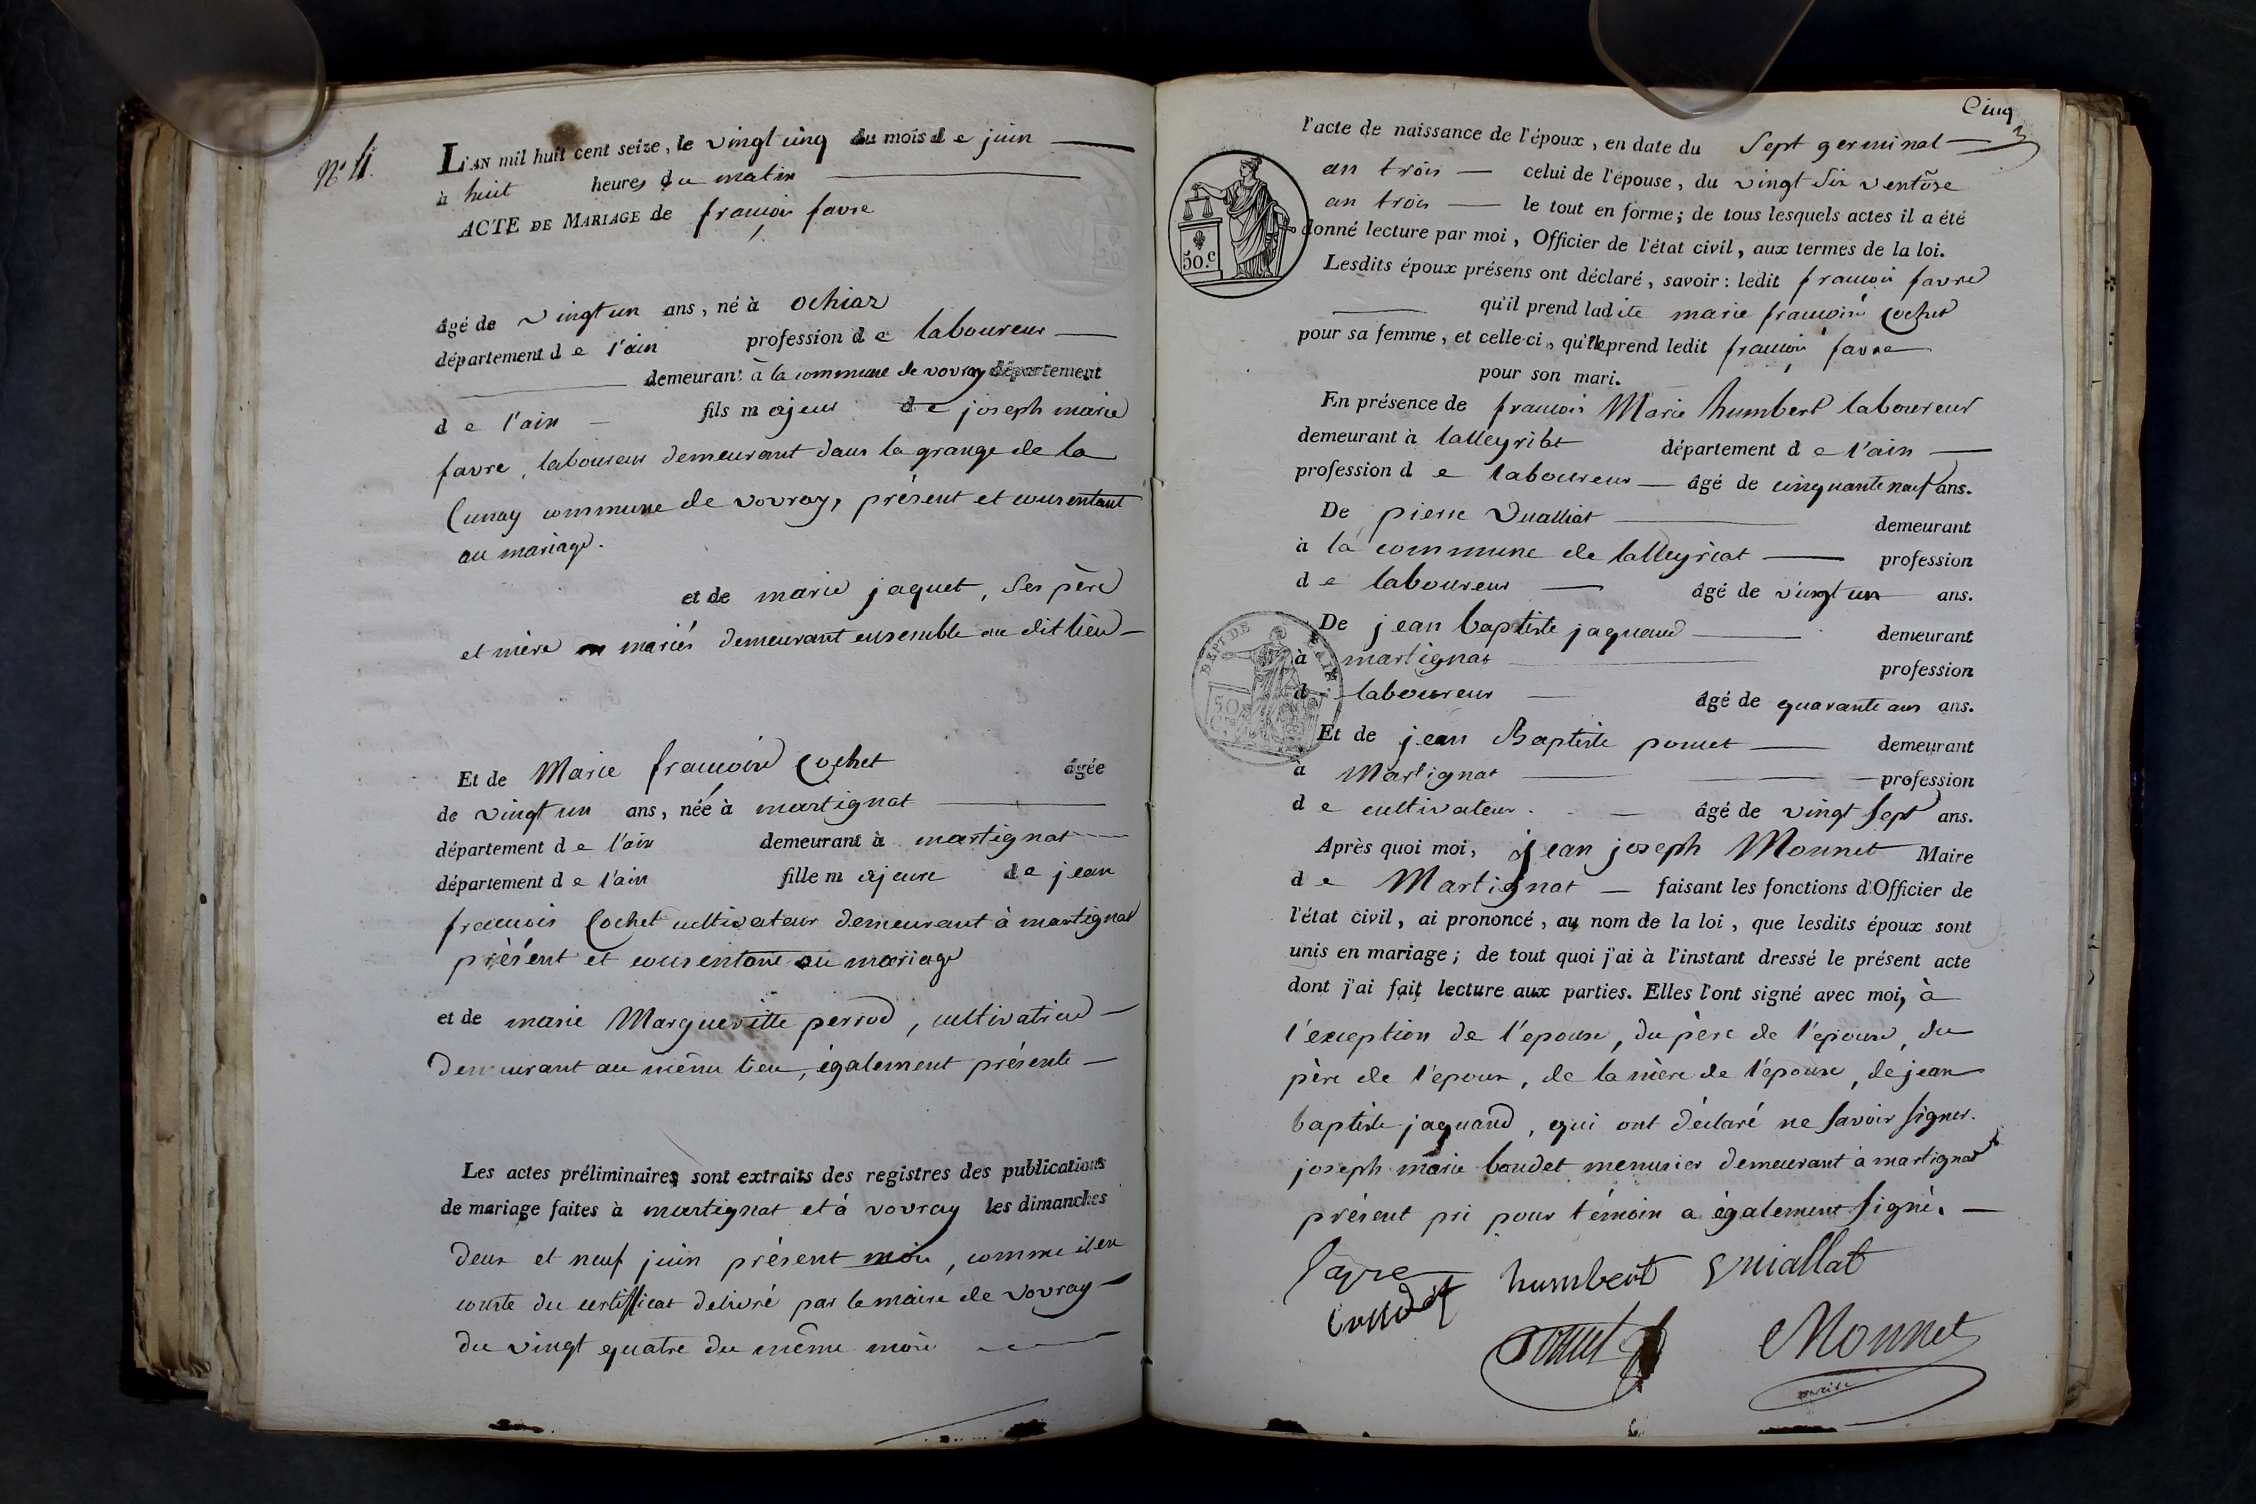 N° 4.
L'AN mil huit cent seize, le vingt cinq du mois de juin
à huit heures du matin
ACTE DE MARIAGE de françois favre
âgé de vingt un ans, né à ochiaz
département de l'ain profession de laboureur
demeurant à la commune de vovray département
de l'ain fils majeur de joseph marie
favre, laboureur demeurant dans la grange de la
Cunay commune de vovray, présent et consentant
au mariage.
et de marie jaquet, ses père
et mère mariés demeurant ensemble au dit lieu
Et de Marie françoise Cochet âgée
de vingt un ans, née à martignat
département de l'ain demeurant à martignat
département de l'ain fille majeure de jean
francois Cochet cultivateur demeurant à martignat
présent et consentant au mariage
et de marie Margueritte perrod, cultivatrice
demeurant au même lieu, également présente
Les actes préliminaires sont extraits des registres des publications
de mariage faites à martignat et à vovray les dimanches
deux et neuf juin présent mois, comme il en
conste du certificat delivré par le maire de vovray
du vingt quatre du même mois
Cinq
l'acte de naissance de l'époux, en date du sept germinal
an trois celui de l'épouse, du vingt six ventôse
an trois le tout en forme; de tous lesquels actes il a été
donné lecture par moi, Officier de l'état civil, aux termes de la loi.
50.c
Lesdits époux présens ont déclaré, savoir: ledit francois favre
qu'il prend ladite marie francoise Cochet
pour sa femme, et celle-ci, qu'elle prend ledit françois favre
pour son mari.
En présence de francois Marie humbert laboureur
demeurant à lalleyriat département de l'ain
profession de laboureur âgé de cinquante neuf ans.
De pierre Vualliat demeurant
à la commune de lalleyriat profession
de laboureur âgé de vingt un ans.
De jean baptiste jaquand demeurant
à martignat profession
d laboureur âgé de quarante ans ans.
DEPT DE L'AIN.
50
Et de jean Baptiste poncet demeurant
à Martignat profession
de cultivateur. âgé de vingt sept ans.
Après quoi moi, jean joseph Monnet Maire
de Martignat faisant les fonctions d'Officier de
l'état civil, ai prononcé, au nom de la loi, que lesdits époux sont
unis en mariage; de tout quoi j'ai à l'instant dressé le présent acte
dont j'ai fait lecture aux parties. Elles l'ont signé avec moi, à
l'exception de l'epouse, du père de l'épouse, du
père de l'epoux, de la mère de l'épouse, de jean
baptiste jaquand, qui ont déclaré ne savoir signer.
joseph marie boudet menusier demeurant à martignat
présent pri pour témoin a également signé.
favre humbert Vuiallat
boudet
Poncet Monnet
maire